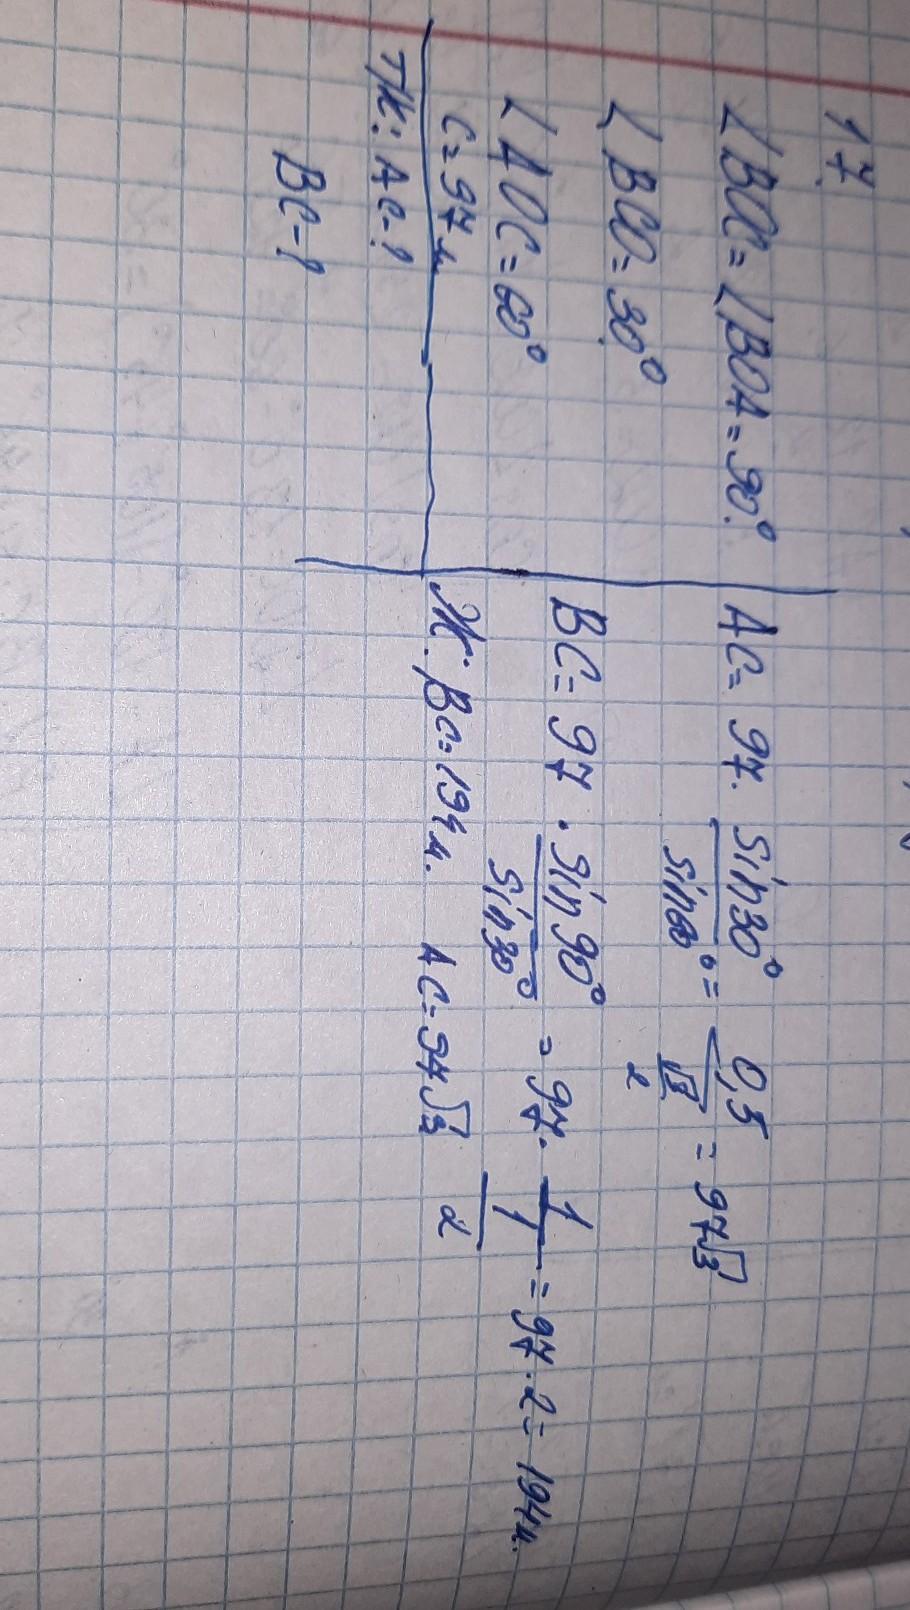 17.
∠BOC = ∠BOA = 90°.
∠BCO = 30°
∠AOC = 60°
c = 97 м
Т/к: AC-?
BC-?
AC = 97 · sin30° / sin60° = 0,5 / √3/2 = 97√3
BC = 97 · sin90° / sin30° = 97 · 1/1/2 = 97 · 2 = 194м.
Ж: BC = 194м. AC = 97√3